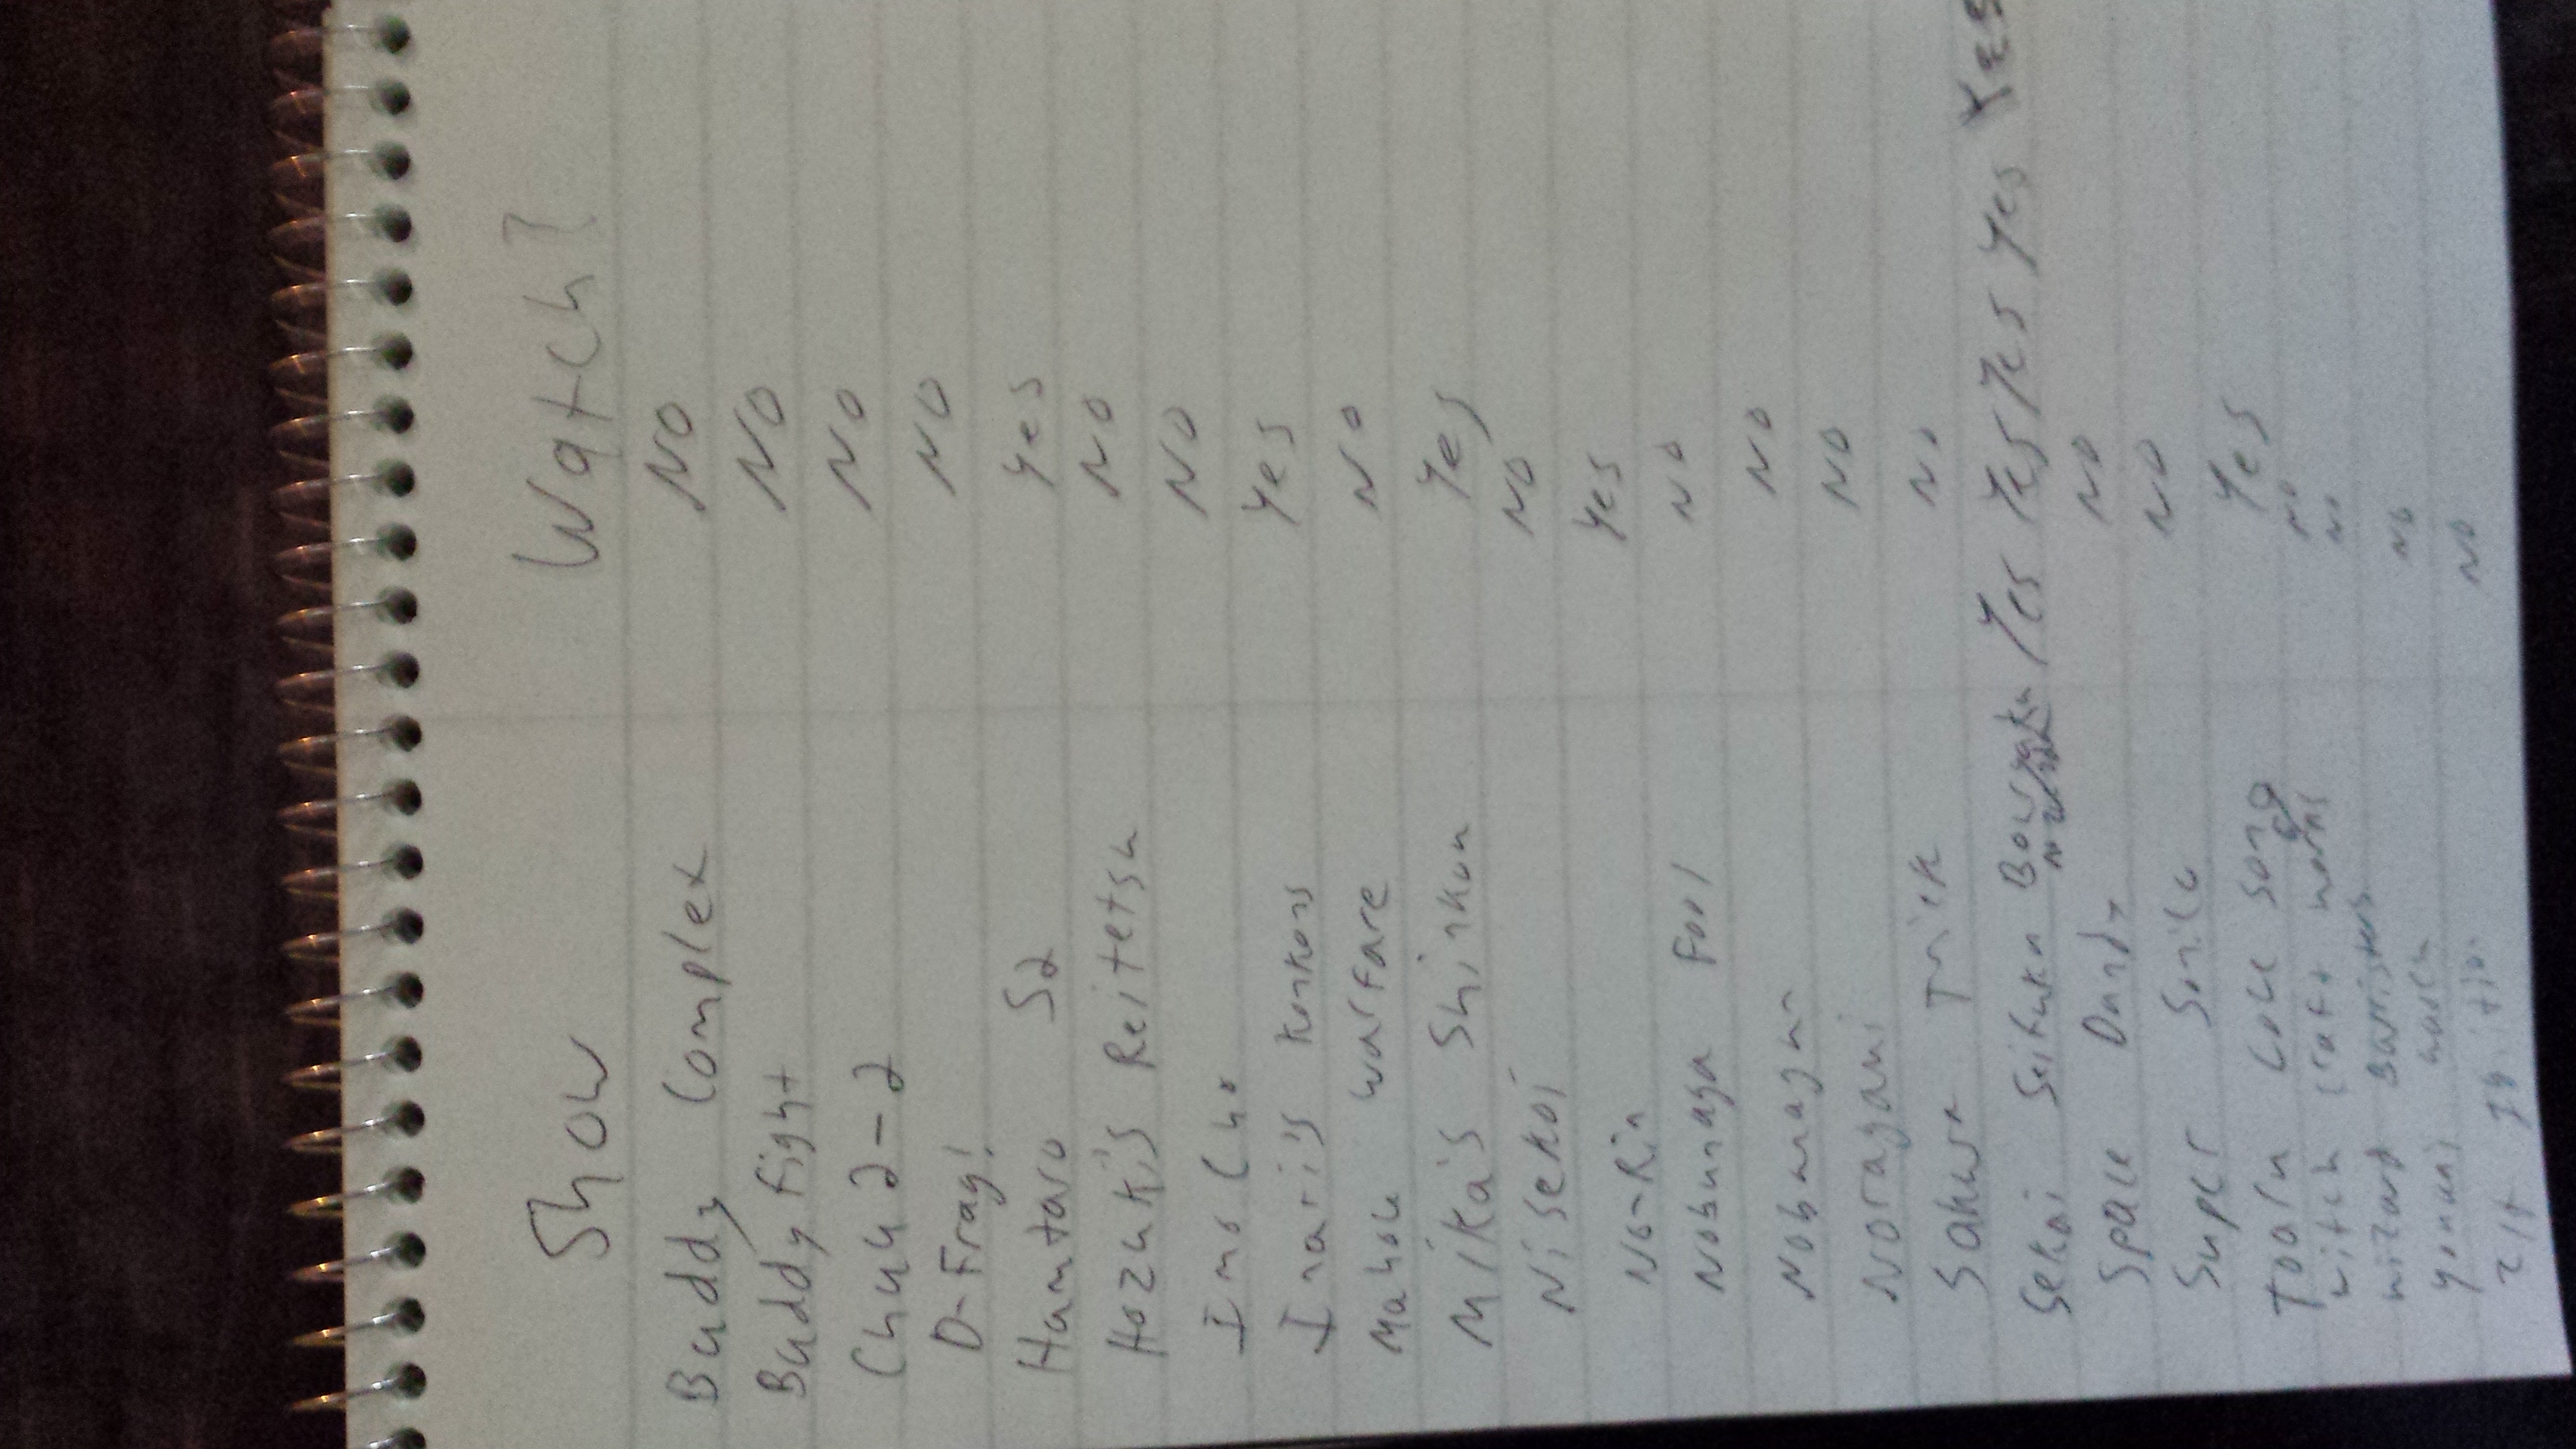 Show Watch?
Buddy Complex NO
Buddy Fight NO
Chuu 2-2 NO
D-Frag! NO
Hamtaro S2 Yes
Hozuki's Reitetsu NO
Imo Cho NO
Inari's Konkons Yes
Mahou Warfare NO
Mika's Shinkou Yes
Nisekoi NO
No-Rin Yes
Nobunaga Fool NO
Nobunagun NO
Noragami NO
Sakura Trick NO
Sekai Seifuku Bouryaku Yes Yes Yes Yes Yes
Space Dandy NO
Super Sonico NO
Toaru Love Song Yes
Witch Craft Works NO
Wizard Barristers NO
Z/X Ignition NO